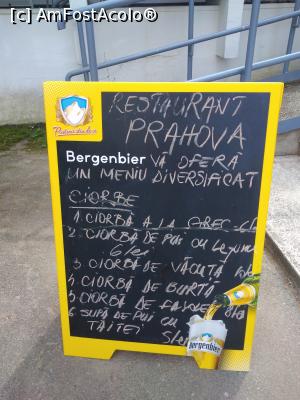 [c] AmFostAcolo®
RESTAURANT
PRAHOVA
Bergenbier VĂ OFERĂ
UN MENIU DIVERSIFICAT
CIORBE
1. CIORBĂ A LA GREC
2. CIORBĂ DE PUI CU Legume
6 lei
3 CIORBĂ DE VĂCUȚĂ
4 CIORBĂ DE BURTĂ
5 CIORBĂ DE FASOLE
6 SUPĂ DE PUI CU
TĂIȚEI
Bergenbier